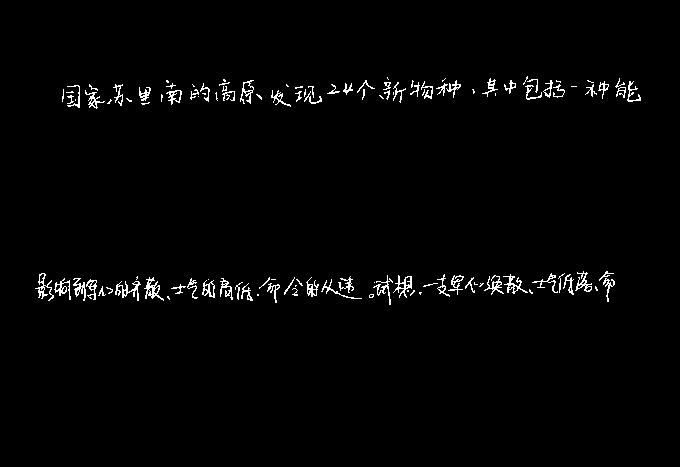 国家苏里南的高原发现24个新物种,其中包括一种能
影响到军心的齐散、士气的高低、命令的从违。试想,一支军心涣散、士气低落、命